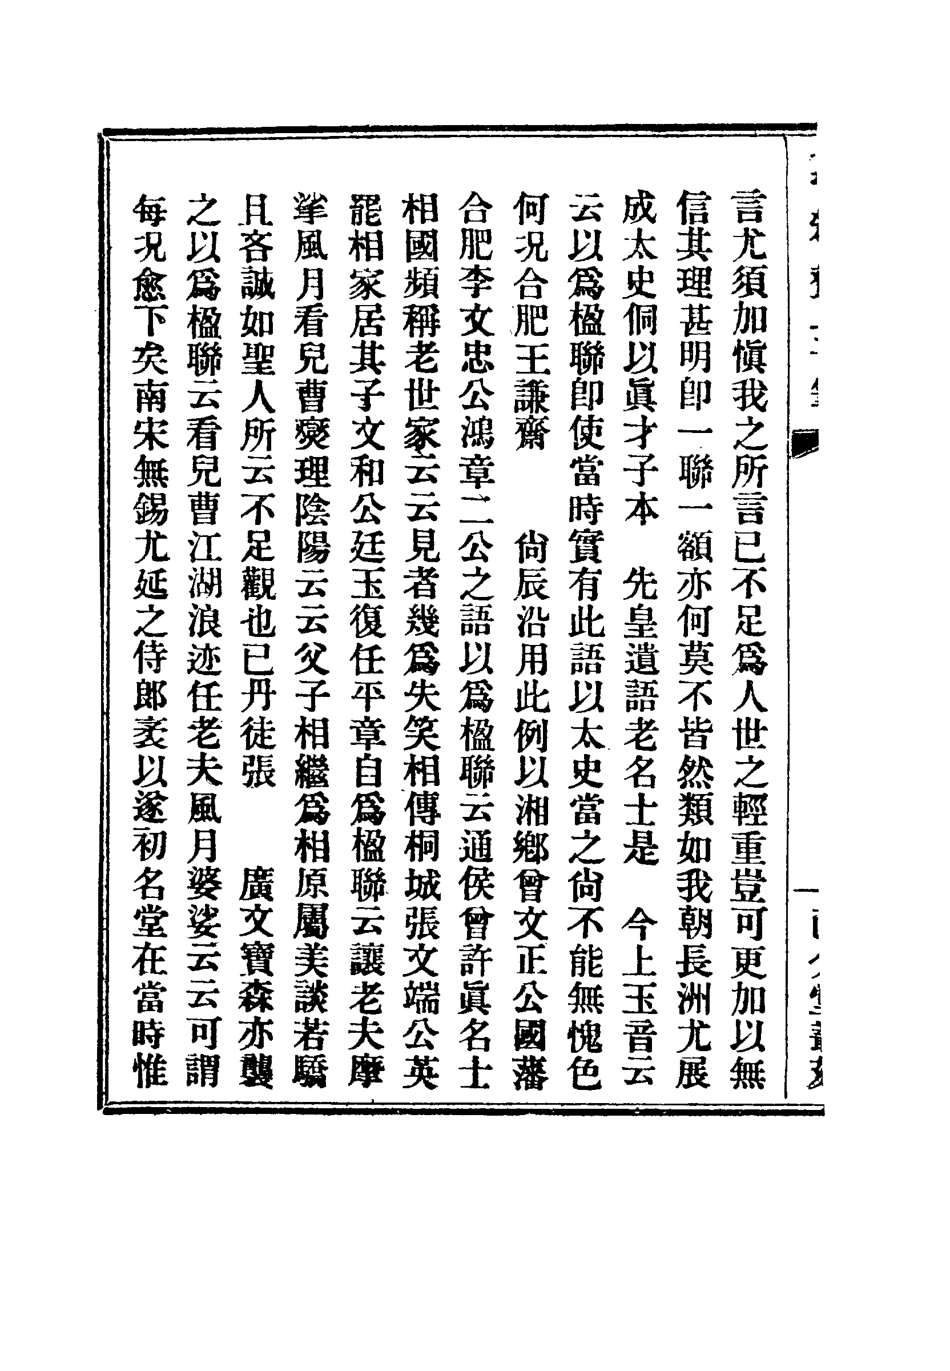 言尤須加愼我之所言已不足爲人世之輕重豈可更加以無
信其理甚明卽一聯一額亦何莫不皆然類如我朝長洲尤展
成太史侗以眞才子本　先皇遺語老名士是　今上玉音云
云以爲楹聯卽使當時實有此語以太史當之尙不能無愧色
何况合肥王謙齋　　尙辰沿用此例以湘鄕曾文正公國藩
合肥李文忠公鴻章二公之語以爲楹聯云通侯曾許眞名士
相國頻稱老世家云云見者幾爲失笑相傳桐城張文端公英
罷相家居其子文和公廷玉復任平章自爲楹聯云讓老夫摩
挲風月看兒曹燮理陰陽云云父子相繼爲相原屬美談若驕
且吝誠如聖人所云不足觀也已丹徒張　　廣文寶森亦襲
之以爲楹聯云看兒曹江湖浪迹任老夫風月婆娑云云可謂
每况愈下矣南宋無錫尤延之侍郎袤以遂初名堂在當時惟